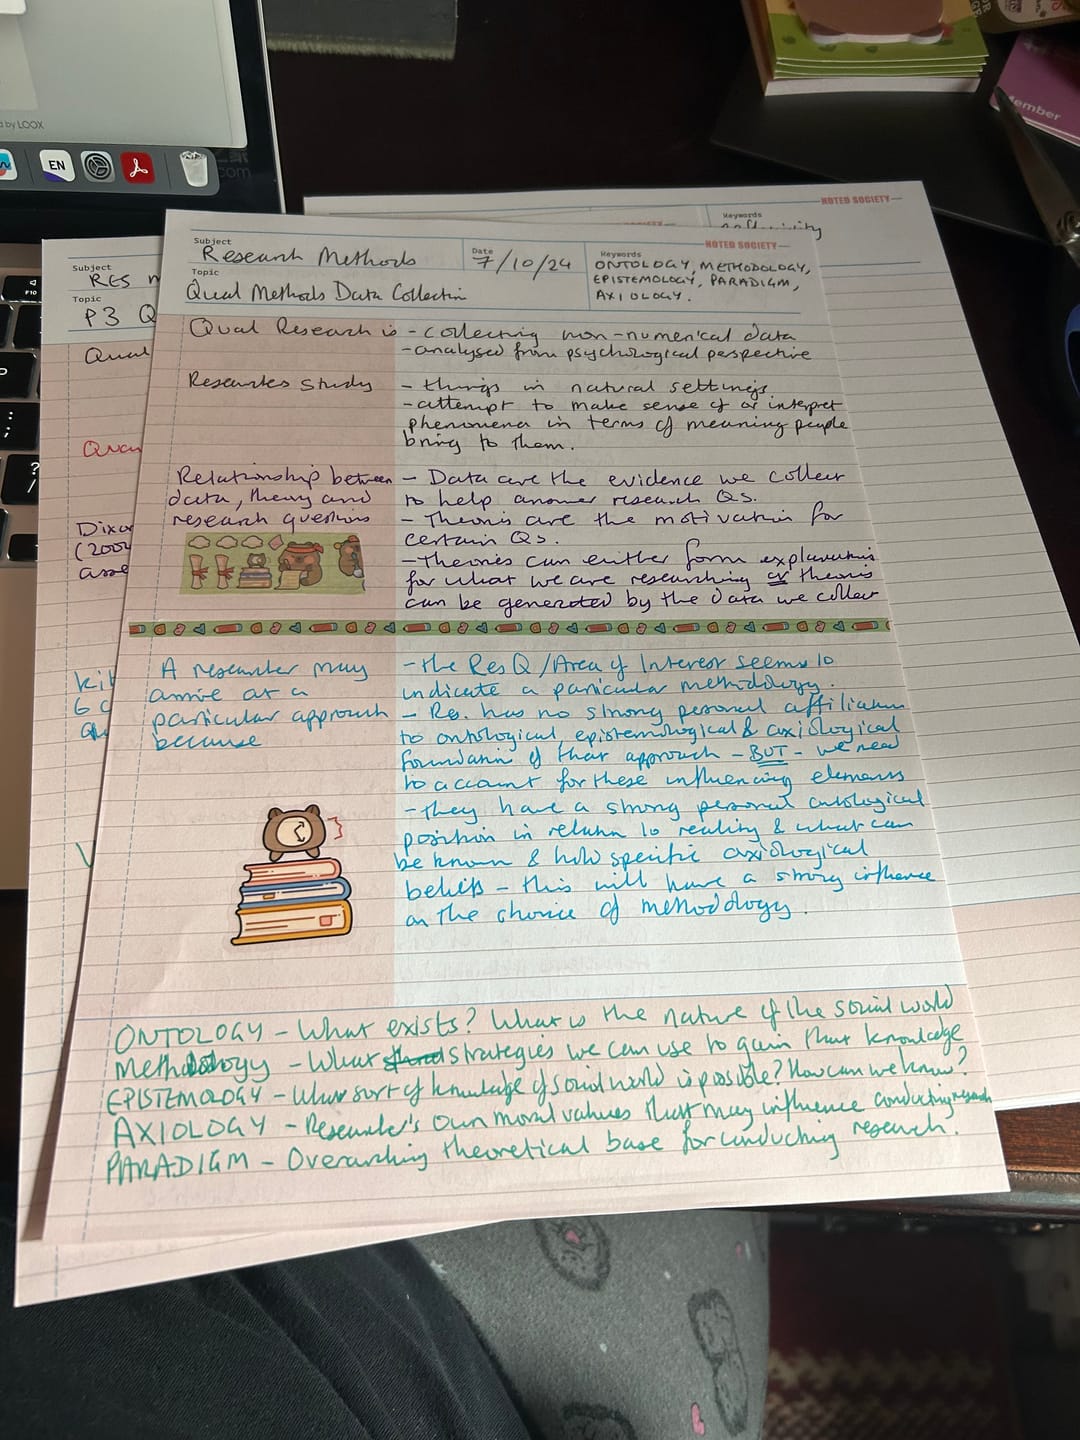 d by LOOX
EN
com
ember
NOTED SOCIETY
Keywords
NOTED SOCIETY
Subject
Research Methods
Date
7/10/24
Keywords
ONTOLOGY, METHODOLOGY,
EPISTEMOLOGY, PARADIGM,
AXIOLOGY.
Topic
Qual Methods Data Collectin
Qual Research is - collecting non-numerical data
- analysed from psychological perspective
Researchers study - things in natural settings
- attempt to make sense of or interpret
phenomena in terms of meaning people
bring to them.
Relationship between
data, theory and
research questions
- Data are the evidence we collect
to help answer research Qs.
- Theories are the motivation for
certain Qs.
- Theories can either form explanations
for what we are researching or theories
can be generated by the data we collect
A researcher may
arrive at a
particular approach
because
- the Res Q / Area of Interest seems to
indicate a particular methodology.
- Rs. has no strong personal affiliation
to ontological, epistemological & axiological
foundation of that approach - BUT - we need
to account for these influencing elements
- they have a strong personal ontological
position in relation to reality & what can
be known & hold specific axiological
beliefs - this will have a strong influence
on the choice of methodology.
ONTOLOGY - What exists? What is the nature of the social world
Methodology - What strategies we can use to gain that knowledge
EPISTEMOLOGY - What sort of knowledge of social world is possible? How can we know?
AXIOLOGY - Researcher's own moral values that may influence conducting research
PARADIGM - Overarching theoretical base for conducting research.
Subject
RES
Topic
P3 Q
Qual
Quan
(2004
asse